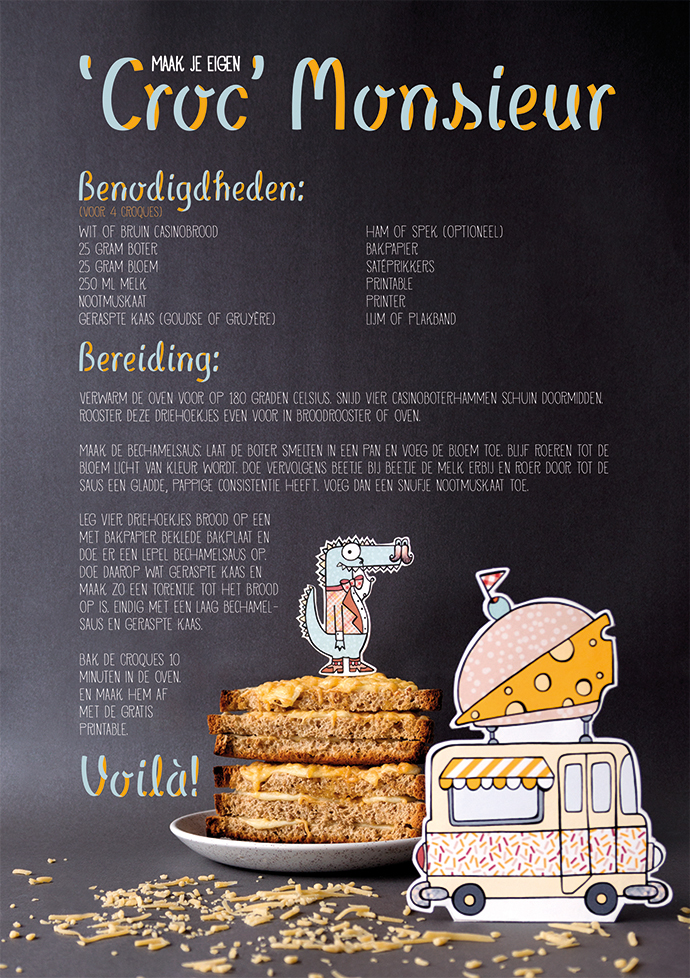 MAAK JE EIGEN
‘Croc’ Monsieur
Benodigdheden:
(VOOR 4 CROQUES)
WIT OF BRUIN CASINOBROOD
25 GRAM BOTER
25 GRAM BLOEM
250 ML MELK
NOOTMUSKAAT
GERASPTE KAAS (GOUDSE OF GRUYÈRE)
HAM OF SPEK (OPTIONEEL)
BAKPAPIER
SATÉPRIKKERS
PRINTABLE
PRINTER
LIJM OF PLAKBAND
Bereiding:
VERWARM DE OVEN VOOR OP 180 GRADEN CELSIUS. SNIJD VIER CASINOBOTERHAMMEN SCHUIN DOORMIDDEN.
ROOSTER DEZE DRIEHOEKJES EVEN VOOR IN BROODROOSTER OF OVEN.
MAAK DE BECHAMELSAUS: LAAT DE BOTER SMELTEN IN EEN PAN EN VOEG DE BLOEM TOE. BLIJF ROEREN TOT DE
BLOEM LICHT VAN KLEUR WORDT. DOE VERVOLGENS BEETJE BIJ BEETJE DE MELK ERBIJ EN ROER DOOR TOT DE
SAUS EEN GLADDE, PAPPIGE CONSISTENTIE HEEFT. VOEG DAN EEN SNUFJE NOOTMUSKAAT TOE.
LEG VIER DRIEHOEKJES BROOD OP EEN
MET BAKPAPIER BEKLEDE BAKPLAAT EN
DOE ER EEN LEPEL BECHAMELSAUS OP.
DOE DAAROP WAT GERASPTE KAAS EN
MAAK ZO EEN TORENTJE TOT HET BROOD
OP IS. EINDIG MET EEN LAAG BECHAMEL-
SAUS EN GERASPTE KAAS.
BAK DE CROQUES 10
MINUTEN IN DE OVEN.
EN MAAK HEM AF
MET DE GRATIS
PRINTABLE.
Voilà!